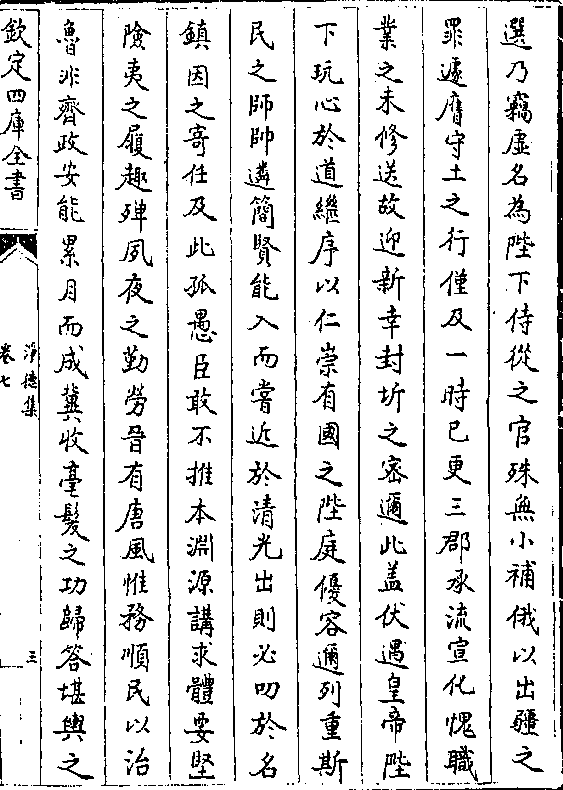 選乃竊虛名為陛下侍從之官殊無小補俄以出疆之
罪遽膺守土之行僅及一時已更三郡承流宣化愧職
業之未修送故迎新幸封圻之密邇此蓋伏遇皇帝陛
下玩心於道繼序以仁崇有國之陛庭優容邇列重斯
民之師帥遴簡賢能入而嘗近於清光出則必叨於名
鎮因之寄任及此孤愚臣敢不推本淵源講求體要堅
險夷之履趣殫夙夜之勤勞晉有唐風惟務順民以治
魯非齊政安能累月而成冀收毫髮之功歸答堪輿之
欽定四庫全書
淨德集
卷七
三